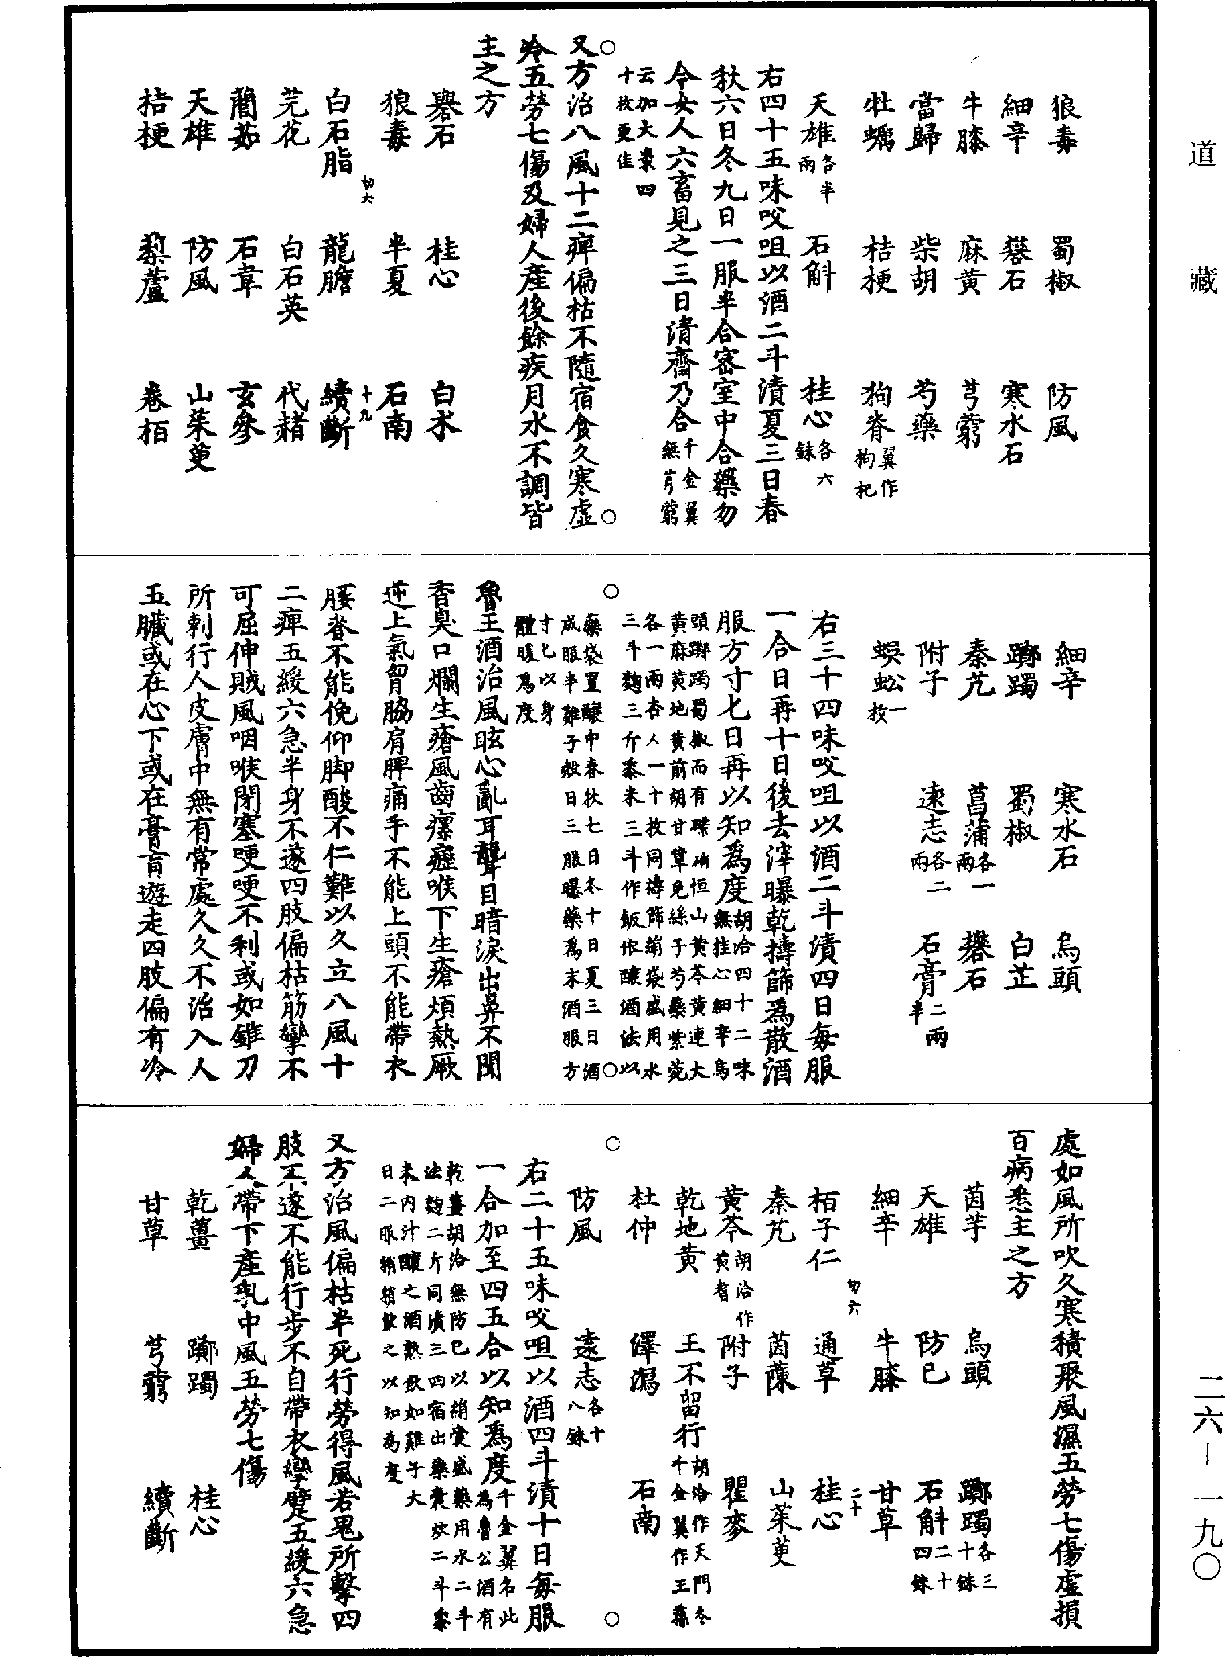 道藏
狼毒 蜀椒 防風
細辛 礜石 寒水石
牛膝 麻黃 芎藭
當歸 柴胡 芍藥
牡蠣 桔梗 狗脊翼作狗杞
天雄各半兩 石斛 桂心各六銖
右四十五味㕮咀以酒二斗漬夏三日春
秋六日冬九日一服半合密室中合藥勿
令女人六畜見之三日清齋乃合千金翼無芎藭
云加大棗四十枚更佳
○又方治八風十二痺偏枯不隨宿食久寒虛○
冷五勞七傷及婦人產後餘疾月水不調皆
主之方
礜石 桂心 白朮
狼毒 半夏 石南
白石脂 龍膽 續斷
初六 十九
芫花 白石英 代赭
蕳茹 石韋 玄參
天雄 防風 山茱萸
桔梗 藜蘆 卷栢
細辛 寒水石 烏頭
躑躅 蜀椒 白芷
秦艽 菖蒲各一兩 礬石
附子 遠志各二兩 石膏二兩半
蜈蚣一枚
右三十四味㕮咀以酒二斗漬四日每服
一合日再十日後去滓曝乾擣篩爲散酒
服方寸匕日再以知爲度胡洽四十二味無桂心細辛烏
頭躑躅蜀椒而有𥔵硝恒山黃芩黃連大
黃麻黃地黃前胡甘草兔絲子芍藥紫菀
各一兩杏人一十枚同擣篩絹袋盛用水
三斗麴三斤黍米三斗作飯依釀酒法以
○藥袋置釀中春秋七日冬十日夏三日酒○
成服半雞子殼日三服曝藥爲末酒服方
寸匕以身體暖爲度
魯王酒治風眩心亂耳聾目暗淚出鼻不聞
香臭口爛生瘡風齒瘰癧喉下生瘡煩熱厥
逆上氣胷脇肩脾痛手不能上頭不能帶衣
腰脊不能俛仰脚酸不仁難以久立八風十
二痺五緩六急半身不遂四肢偏枯筋攣不
可屈伸賊風咽喉閉塞哽哽不利或如錐刀
所刺行人皮膚中無有常處久久不治入人
五臟或在心下或在膏肓遊走四肢偏有冷
處如風所吹久寒積聚風濕五勞七傷虛損
百病悉主之方
茵芋 烏頭 躑躅各三十銖
天雄 防已 石斛二十四銖
細辛 牛膝 甘草
初六 二十
栢子仁 通草 桂心
秦艽 茵蔯 山茱萸
黃芩胡洽作黃耆 附子 瞿麥
乾地黃 王不留行胡洽作天門冬千金翼作王藥
杜仲 澤瀉 石南
○防風 遠志各十八銖○
右二十五味㕮咀以酒四斗漬十日每服
一合加至四五合以知爲度千金翼名此爲魯公酒有
乾薑胡洽無防已以絹囊盛藥用水二斗
法麴二斤同漬三四宿出藥囊炊二斗黍
米內汁釀之酒熟飲如雞子大
日二服稍稍飲之以知爲度
又方治風偏枯半死行勞得風若鬼所擊四
肢不遂不能行步不自帶衣攣躄五緩六急
婦人帶下產乳中風五勞七傷
乾薑 躑躅 桂心
甘草 芎藭 續斷
二六—一九〇